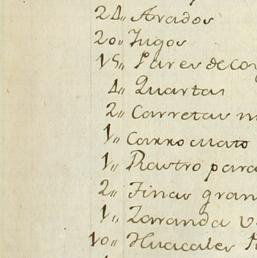 24,, Arados
20,, Jugos
15,, Pares de Coy
4,, Quartas
2,, Carretas
1,, Carromato
1,, Rastro para
2,, Tinas gran
1,, Zaranda
10,, Huacales